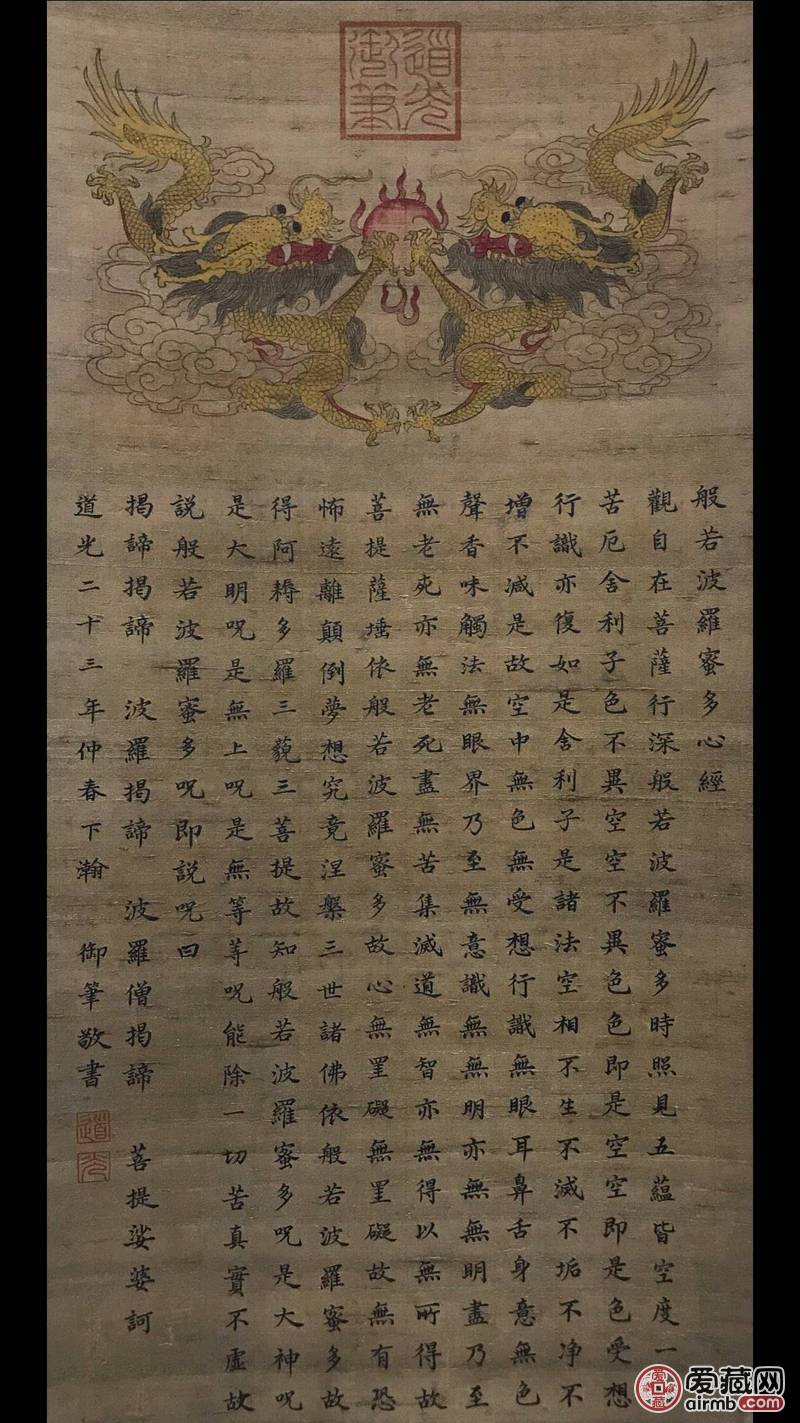 道光
御筆
般若波羅蜜多心經
觀自在菩薩行深般若波羅蜜多時照見五蘊皆空度一
苦厄舍利子色不異空空不異色色即是空空即是色受想
行識亦復如是舍利子是諸法空相不生不滅不垢不净不
增不減是故空中無色無受想行識無眼耳鼻舌身意無色
聲香味觸法無眼界乃至無意識無無明亦無無明盡乃至
無老死亦無老死盡無苦集滅道無智亦無得以無所得故
菩提薩埵依般若波羅蜜多故心無罣礙無罣礙故無有恐
怖遠離顛倒夢想究竟涅槃三世諸佛依般若波羅蜜多故
得阿耨多羅三藐三菩提故知般若波羅蜜多呪是大神呪
是大明呪是無上呪是無等等呪能除一切苦真實不虛故
說般若波羅蜜多呪即說呪曰
揭諦揭諦 波羅揭諦 波羅僧揭諦 菩提娑婆訶
道光二十三年仲春下瀚 御筆敬書
道光
爱藏网
airmb.com